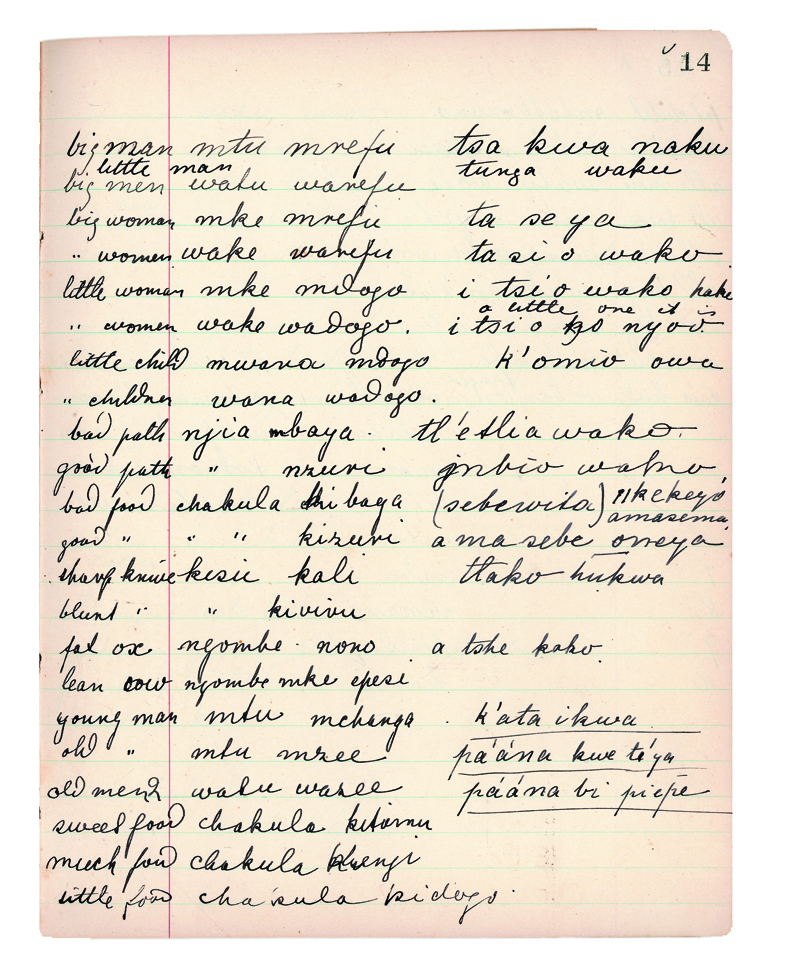 14
big man mtu mrefu tsa kwa naku
little man tunga waku
big men watu warefu
big woman mke mrefu ta se ya
" women wake warefu ta si o wako
little woman mke mdogo i tsi o wako hake
a little one it is
" women wake wadogo. i tsi o ko nyoo
little child mwana mdogo k'omio owa
" children wana wadogo.
bad path njia mbaya. tl'etlia wako
good path " nzuri
bad food chakula kibaya (sebewita)
amasema
good " " " kizuri a ma sebe oweya
sharp knive kesu kali tlako hukwa
blunt " " kivivu
fat ox ngombe nono a tshe kako
lean cow ngombe mke epesi
young man mtu mchanga. k'ata ikwa
old " mtu mzee pá'ána kwe té'ya
old men watu wazee pá'ána bi piepe
sweet food chakula kitamu
much food chakula kwengi
little food chakula kidogo.